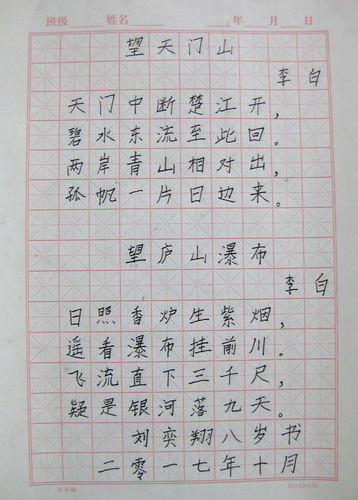 班级 姓名 年 月 日
望天门山
李白
天门中断楚江开，
碧水东流至此回。
两岸青山相对出，
孤帆一片日边来。
望庐山瀑布
李白
日照香炉生紫烟，
遥看瀑布挂前川。
飞流直下三千尺，
疑是银河落九天。
刘奕翔八岁书
二零一七年十月